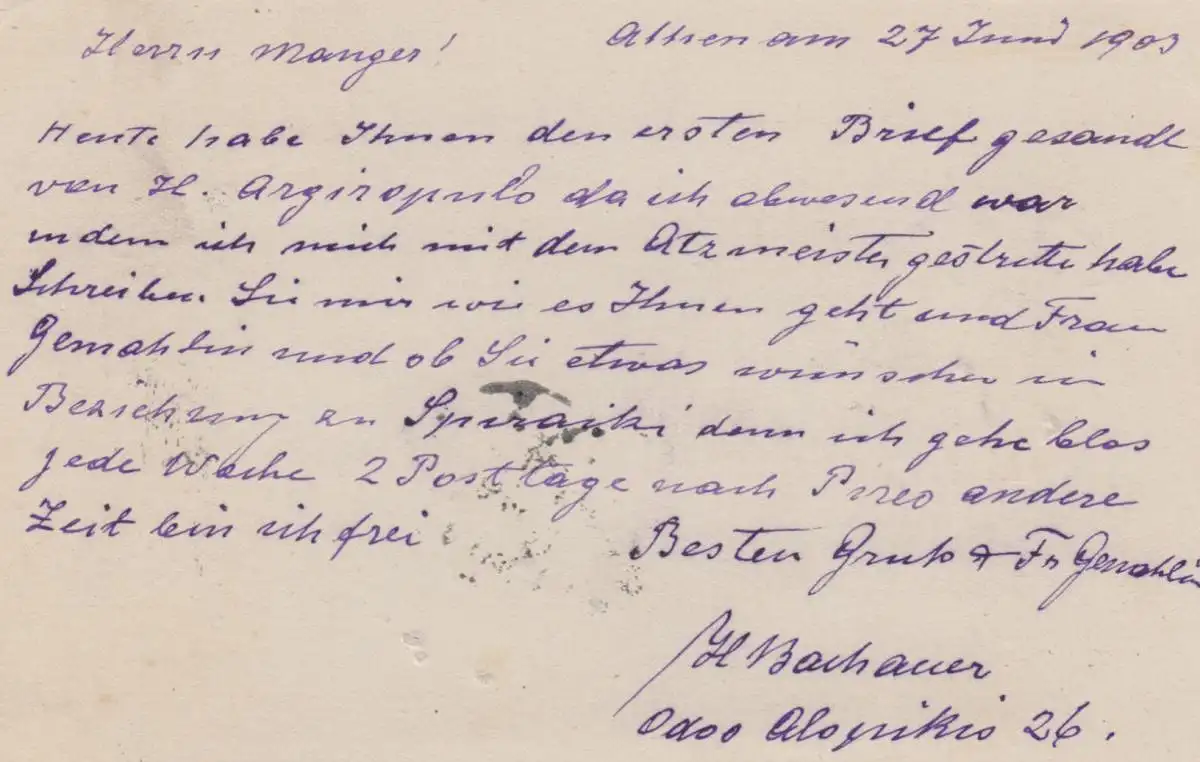 Herrn Manger!
Athen am 27 Juni 1903
Heute habe Ihnen den ersten Brief gesandt
von H. Argiropulo da ich abwesend war
indem ich mich mit dem Atzmeister gestritte habe
Schreiben Sie mir wie es Ihnen geht und Frau
Gemahlin und ob Sie etwas wünschen in
Beziehung zu denn ich gehe blos
jede Woche 2 Posttage nach Pireo andere
Zeit bin ich frei
Besten Gruß & Fr Gemahlin
H Bachauer
Odos Alopikis 26.